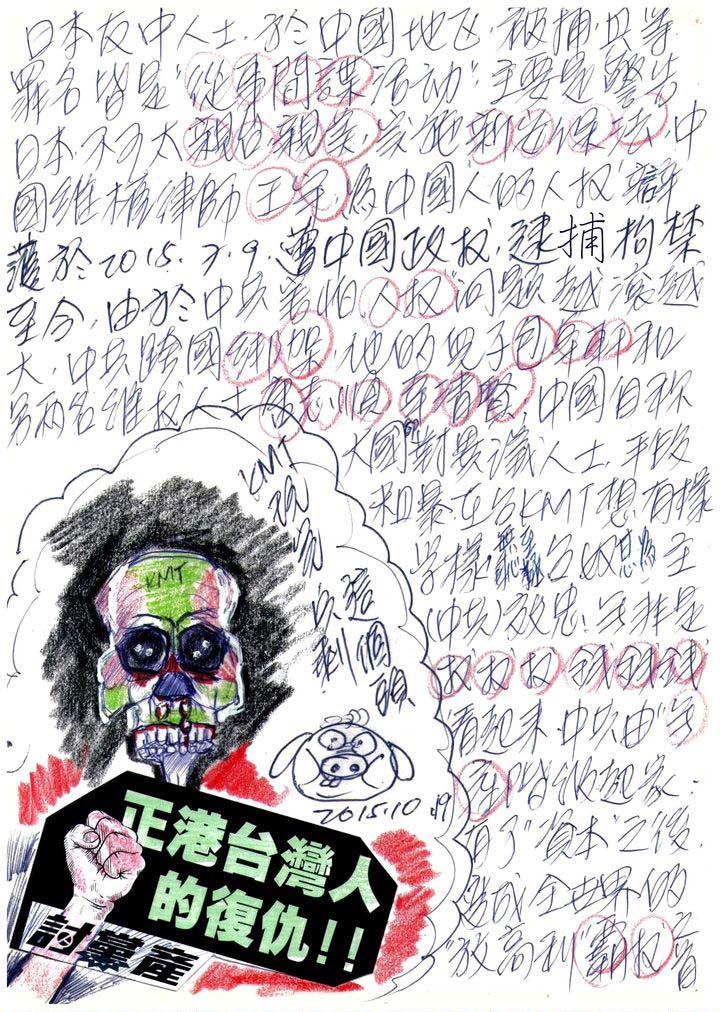 日本友中人士,於中國地区,被捕,其等
罪名皆是"從事間諜活动",主要是警告
日本,不可太親台親美,實施新安保法",中
國維權律師王宇,為中國人的人权
於2015.7.9.遭中國政权,逮捕拘禁
至今,由於中共害怕"人权"问題越滾越
大,中共跨國綁架,他的兒子包卓軒和
另兩名維权人士唐志順、幸清賢,中國自称
大國對異議人士,手段
粗暴,在台KMT想有樣
學樣,無
(中共)效忠,
权权权錢錢錢
看起來,中共由"
起家.
有了"資本"之後,
造成全世界的
"放高利"霸权音
KMT
玩完
只剩
這個
頭
KMT
2015.10.19
正港台灣人
的復仇!!
討黨產